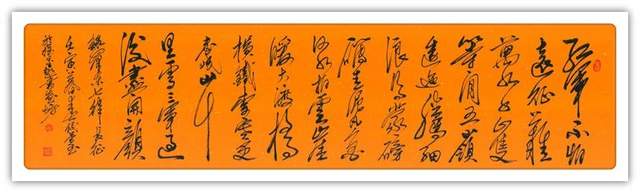 紅軍不怕
遠征難
萬水千山隻
等閒五嶺
逶迤騰細
浪烏蒙磅
礴走泥丸金
沙水拍雲崖
暖大渡橋
橫鐵索寒更
喜岷山千
里雪三軍過
後盡開顏
長征
壬寅